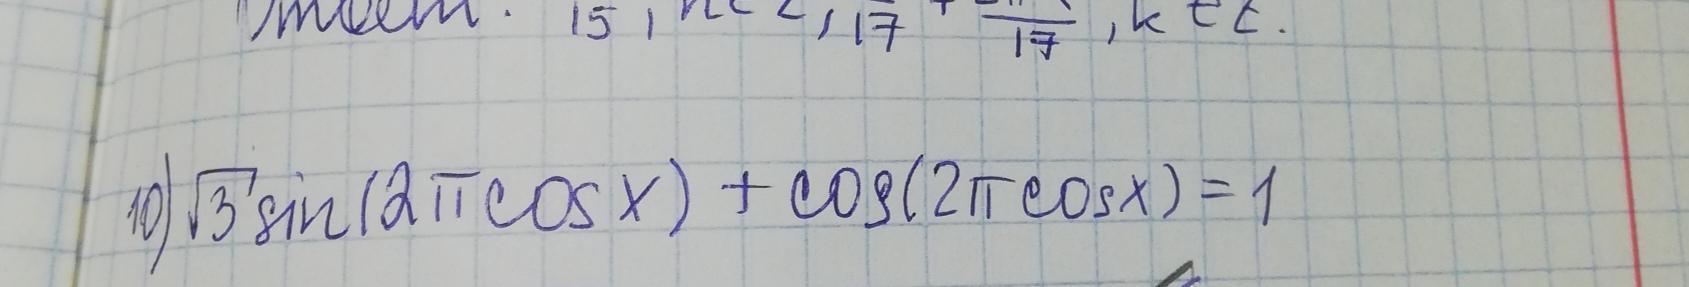 15, n ∈ Z, 17 + 17, k ∈ Z.
10) √3 sin(2π cos x) + cos(2π cos x) = 1